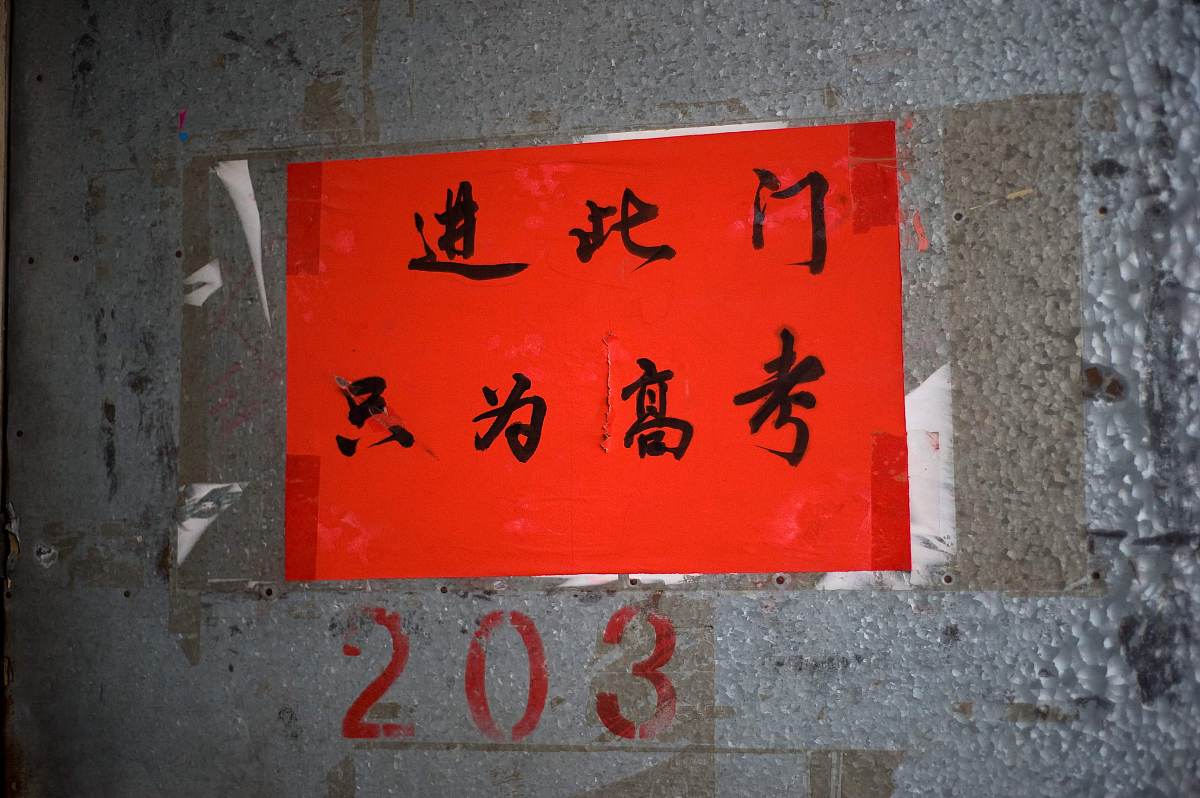 进此门
只为高考
203